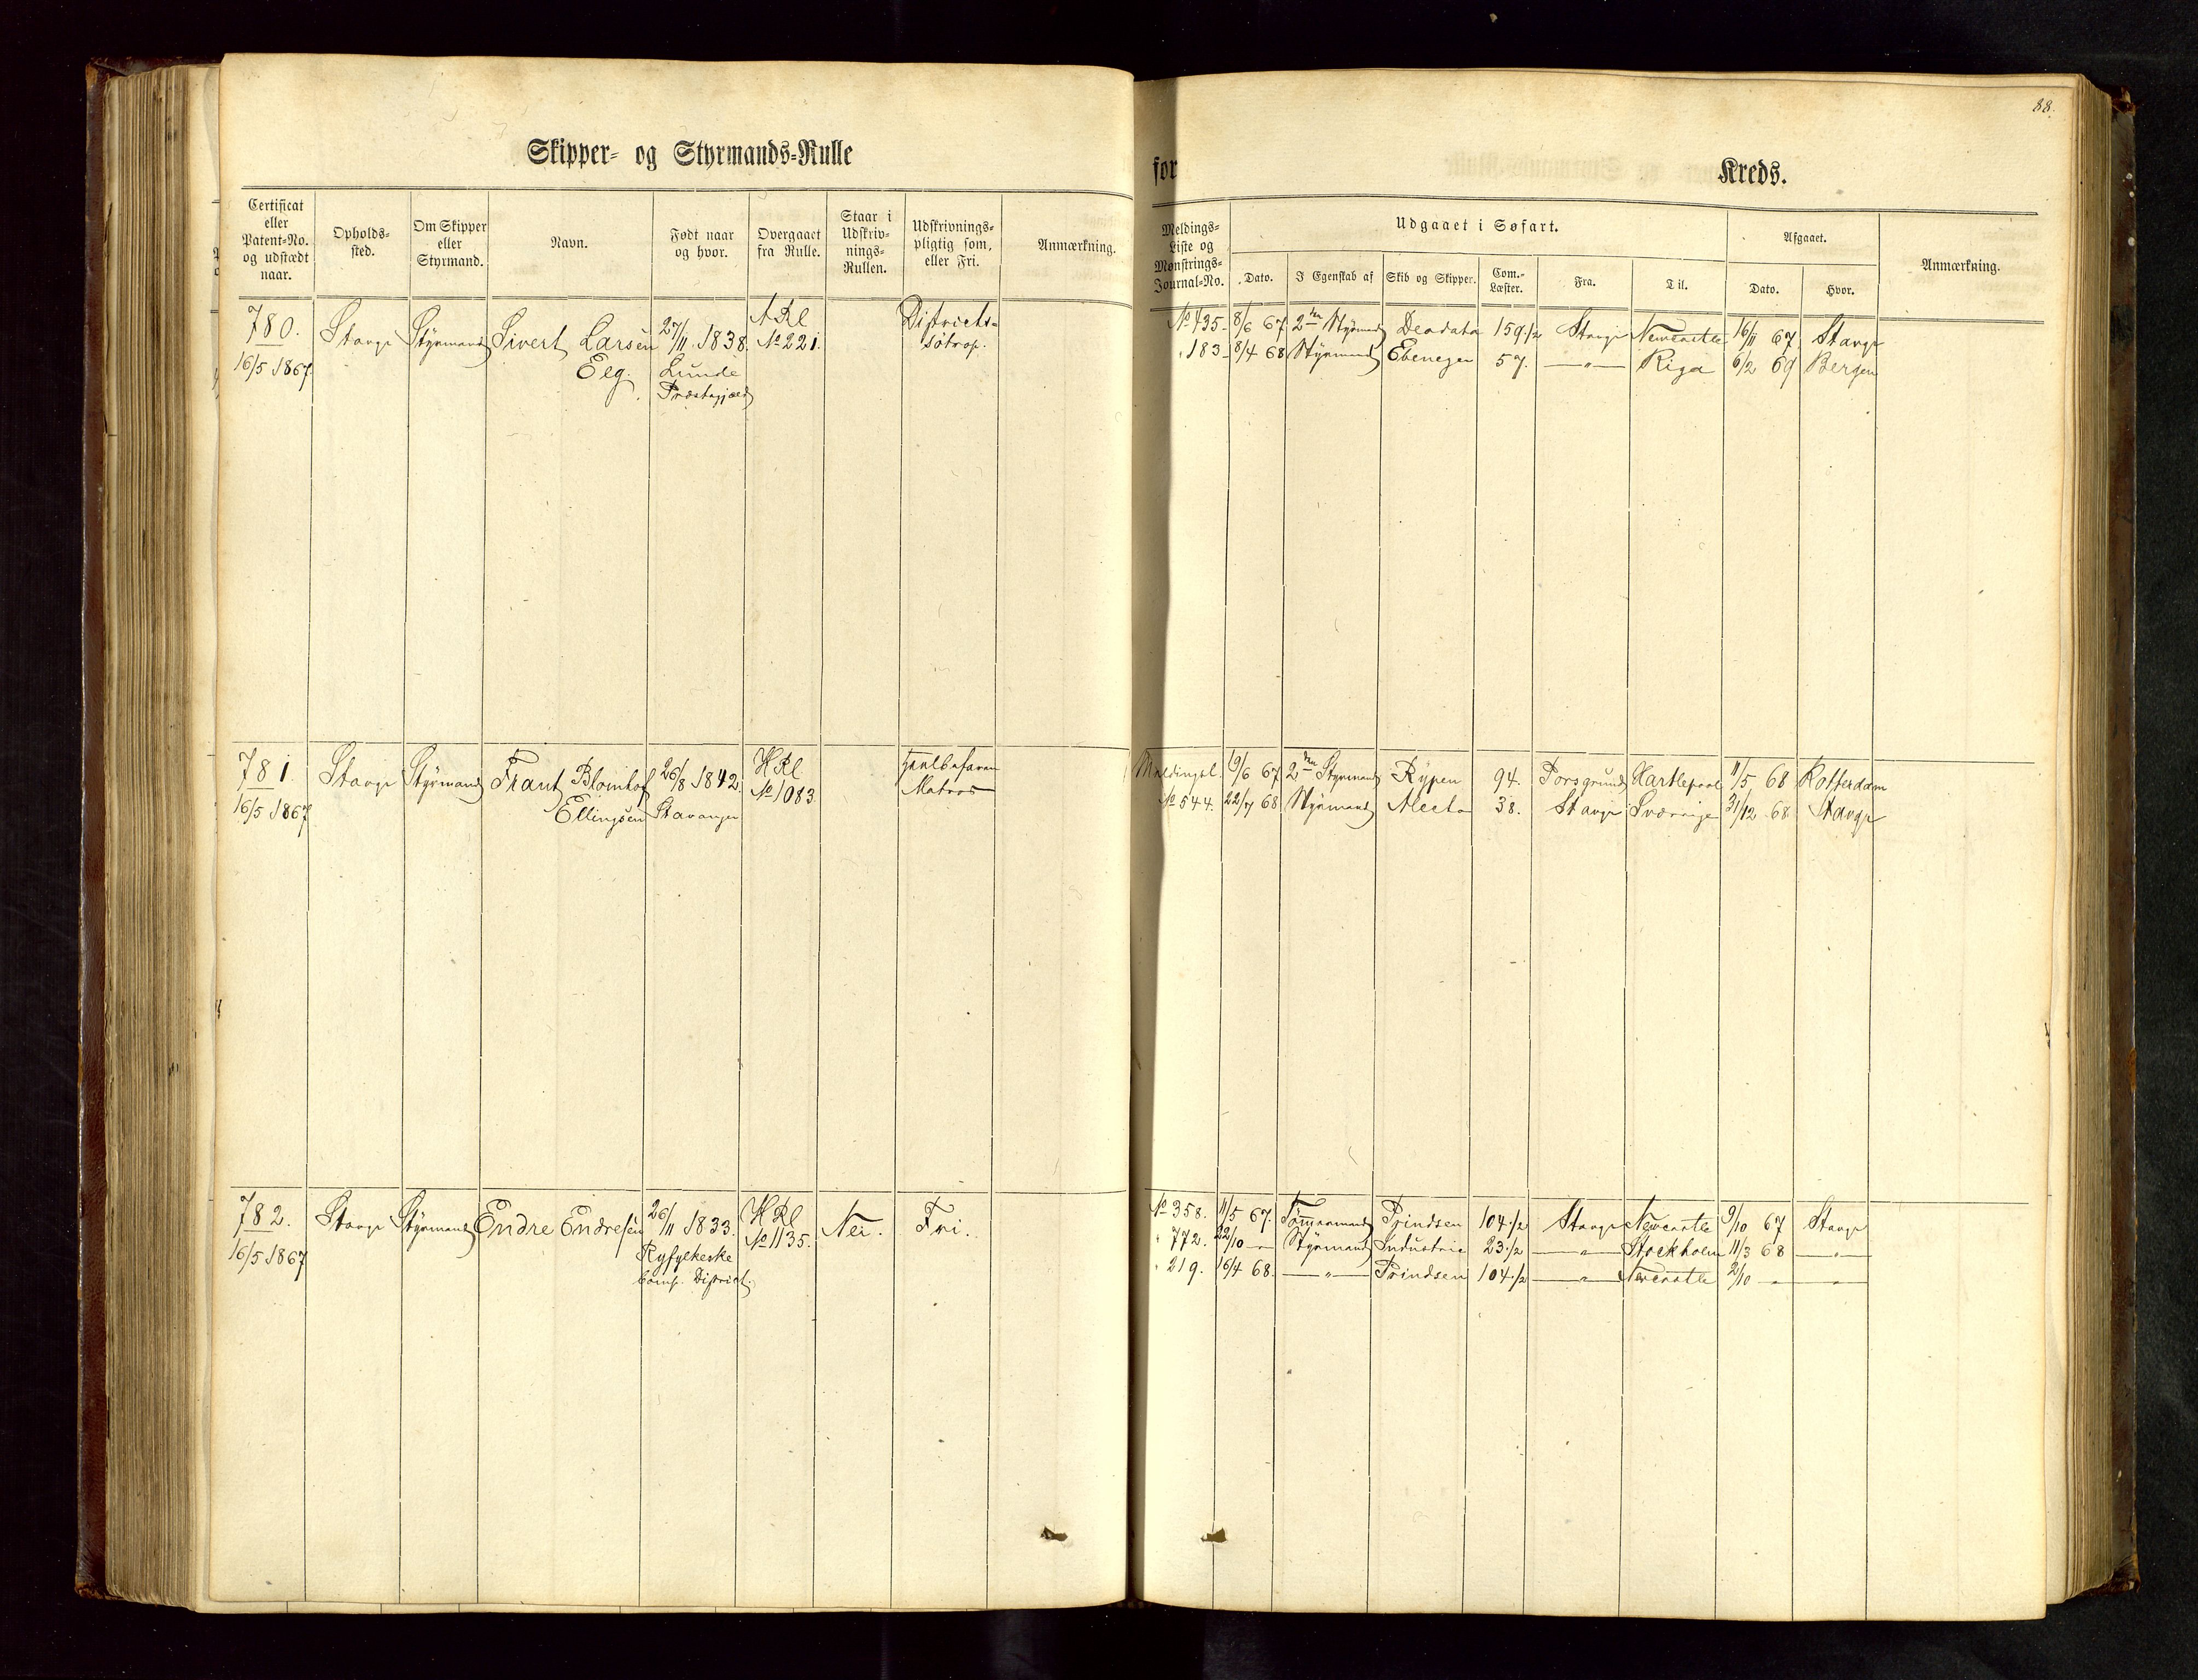 88.
Skipper- og Styrmands-Rulle
for Kreds.
Certificat eller Patent-No. og udstædt naar.
Opholds-sted.
Om Skipper eller Styrmand.
Navn.
Født naar og hvor.
Overgaaet fra Rulle.
Staar i Udskriv-nings-Rullen.
Udskrivnings-pligtig som, eller Fri.
Anmærkning.
Meldings-Liste og Mønstrings-Journal-No.
Udgaaet i Søfart.
Dato.
I Egenskab af
Skib og Skipper.
Com.-Læster.
Fra.
Til.
Afgaaet.
Dato.
Hvor.
Anmærkning.
780. Stavgr Styrmand Sivert Larsen 27/11 1838. ARl Districts-
16/5 1867. Elg. Lunde No 221. Søtrop.
Præstegjæld
No 435. 8/6 67. 2den Styrmand Deodata 159 1/2 Stavgr Newcastle 16/11 67. Stavgr
" 183. 8/4 68 Styrmand Ebeneser 57. —"— Riga 6/2 69 Bergen
781. Stavgr Styrmand Frantz Blomhof 26/8 1842. HRl Halvbefaren
16/5 1867. Ellingsen Stavanger No 1083. Matros
Meldingsl. 19/6 67. 2den Styrmand Rypen 94. Porsgrund Hartlepool 11/5 68 Rotterdam
No 544. 22/7 68 Styrmand Alecto 38. Stavgr Sverrige 31/12 68. Stavgr
782. Stavgr Styrmand Endre Endresen 26/11 1833. HRl Nei. Fri.
16/5 1867 Ryfylkeske No 1135.
Comp. District.
No 358. 11/5 67. Tømmermand Prindsen 104 1/2 Stavgr Newcastle 9/10 67 Stavgr
" 772. 22/10 — Styrmand Industrie 23 1/2 —"— Stockholm 11/3 68 —"—
" 219. 16/4 68. —"— Prindsen 104 1/2 —"— Newcastle 2/10 — —"—